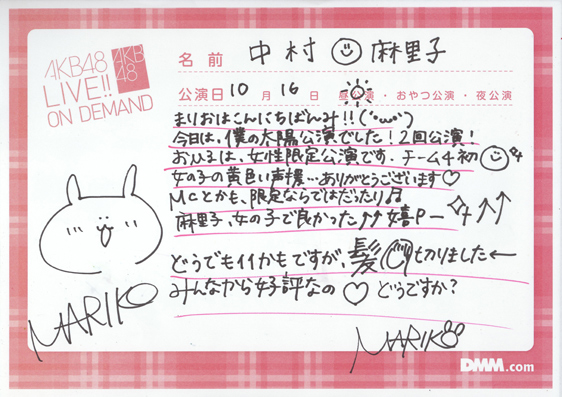 AKB48
LIVE!!
ON DEMAND
AKB
48
名前 中村 麻里子
公演日 10月 16日 昼公演・おやつ公演・夜公演
まりおはこんにちばんみ!!(･ω･)
今日は、僕の太陽公演でした!2回公演!
おひるは、女性限定公演です。チーム4初
女の子の黄色い声援…ありがとうございます♡
MCとかも、限定ならではだったり♫
麻里子、女の子で良かった↑↑嬉P— ↑↑
どうでもイイかもですが、髪 切りました←
みんなから好評なの♡どうですか?
MARIKO
MARIKO
DMM.com